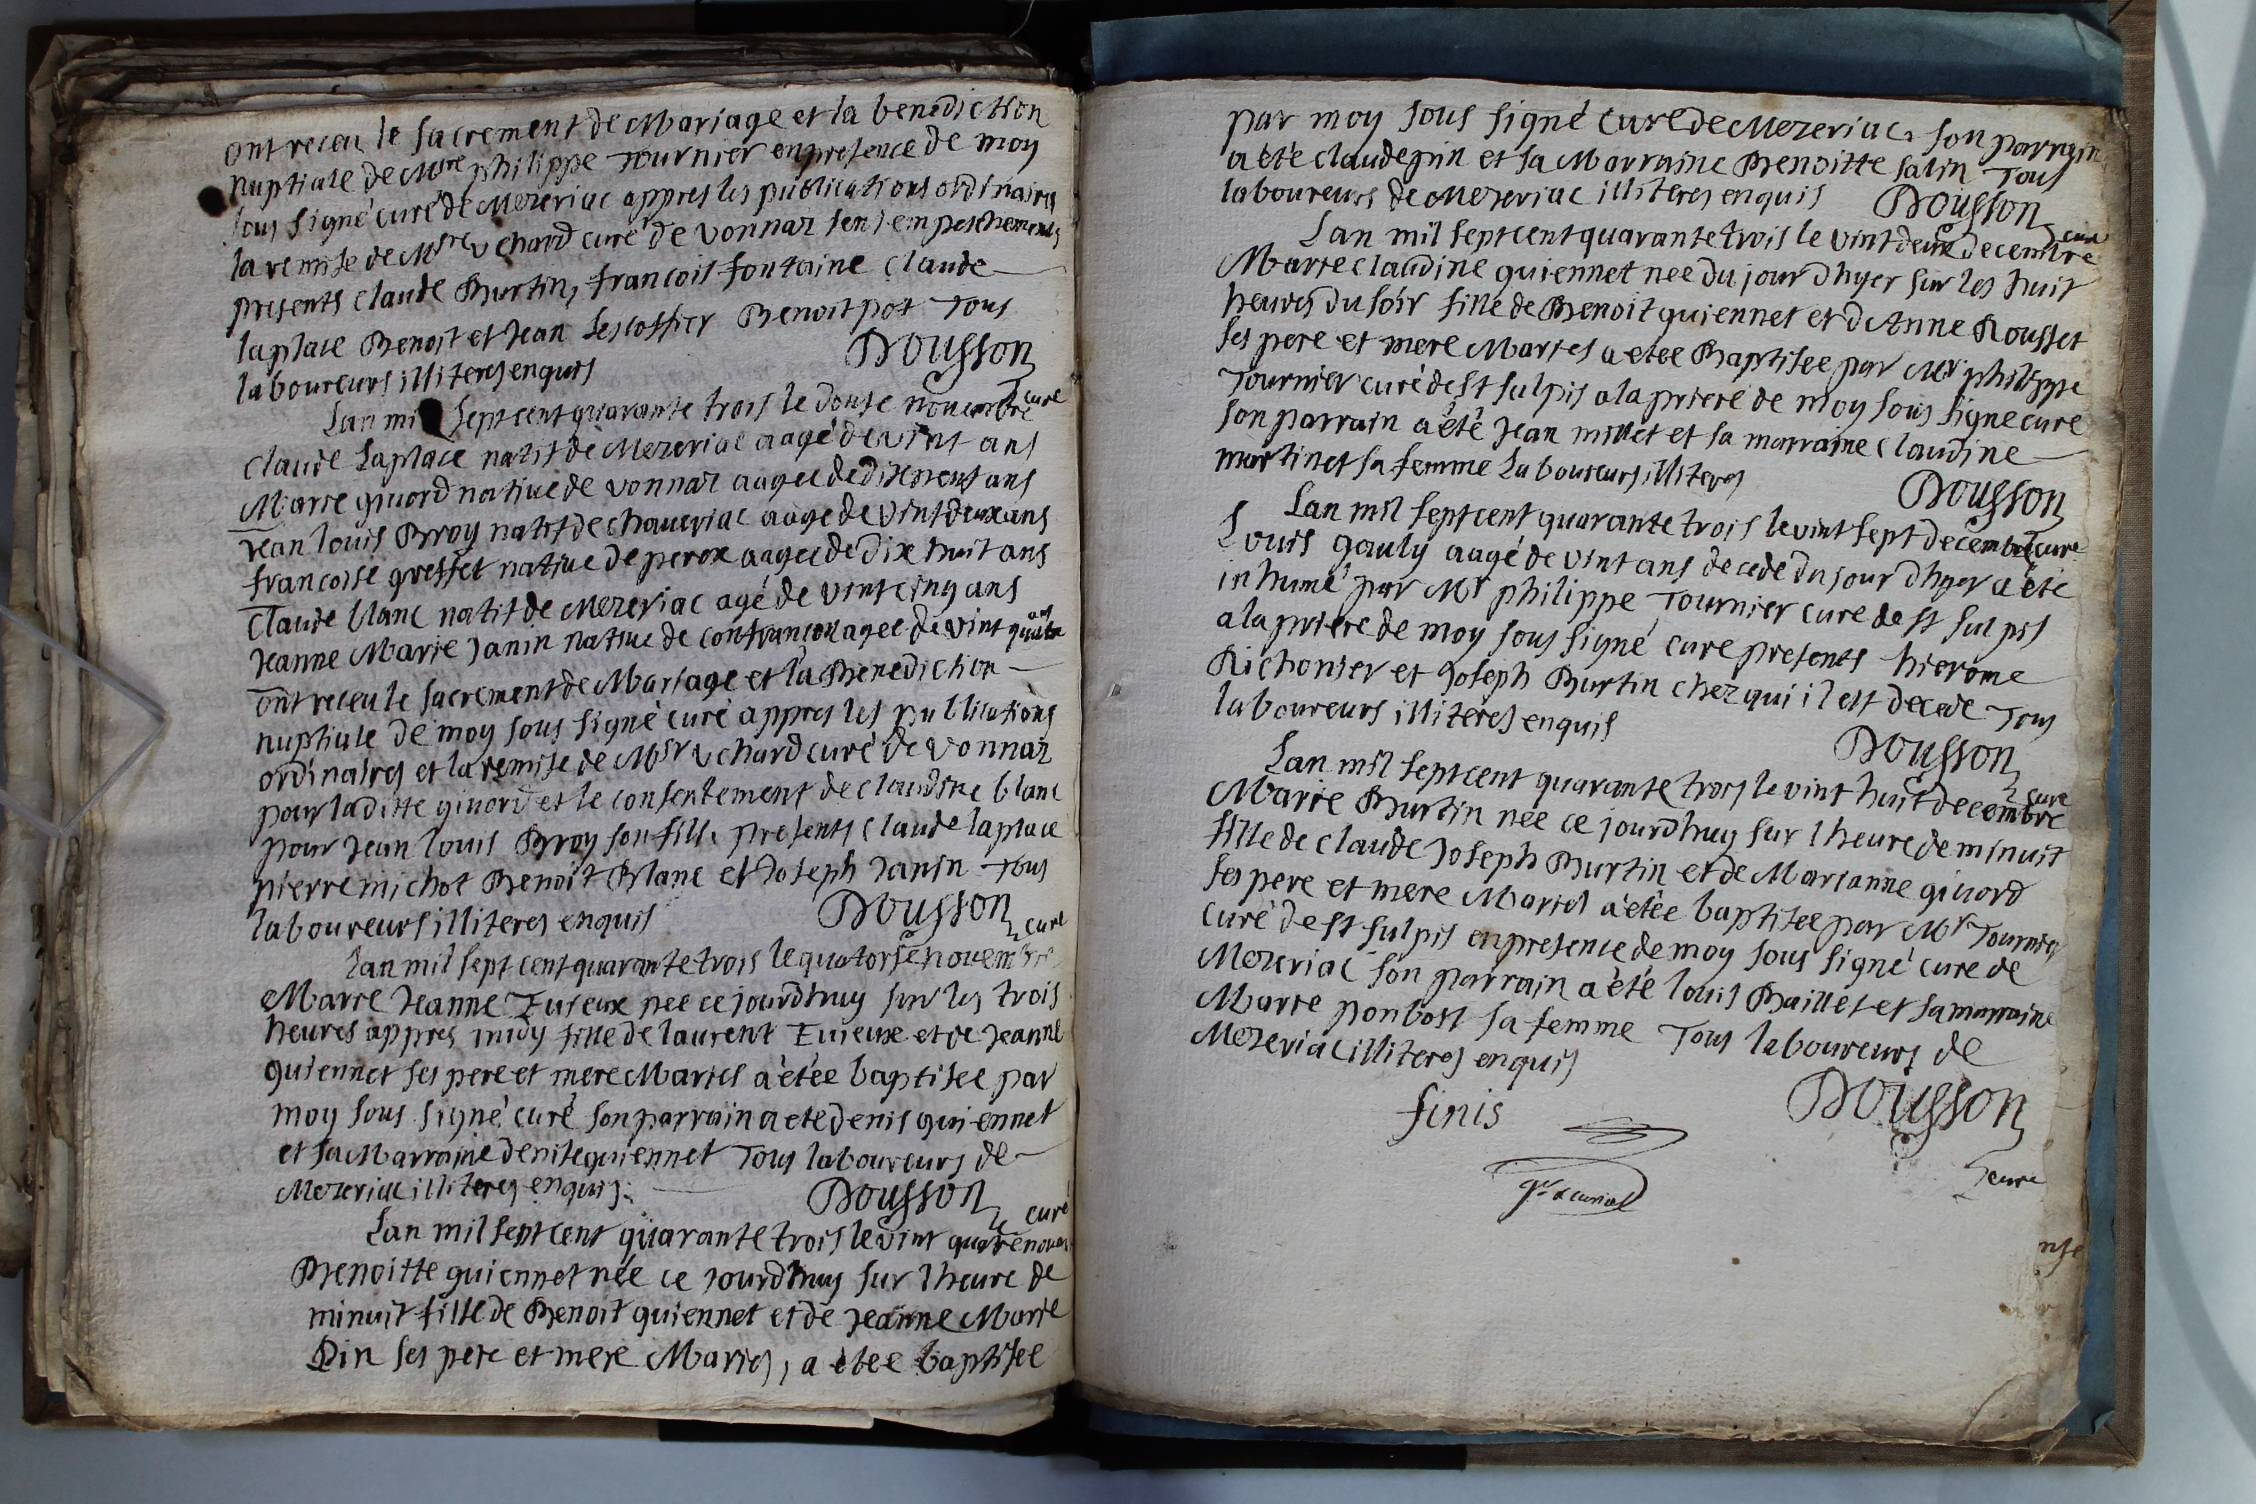 ont receu le sacrement de Mariage et la benediction
nuptiale de Msre philippe Tournier en presence de moy
sous signé curé de Mezeriac appres les publications ordinaires
la remise de Msre uchard curé de vonnaz sens empeschements
presents claude Burtin, francois fontaine claude
laplace Benoit et Jean Lescoffier Benoit pot Tous
laboureurs illiteres enquis DOUSSON curé
Lan mil sept cent quarante trois le douse novembre
claude Laplace natif de Mezeriac aagé de vint ans
Marie givord native de vonnaz aagee de dix neuf ans
Jean louis Broy natif de chaveriac aage de vint deux ans
francoise greffet native de perox aagee de dix huit ans
Claude blanc natif de Mezeriac agé de vint cinq ans
Jeanne Marie Janin native de confrançon agee de vint quatre ans
ont receu le sacrement de Mariage et la Benediction
nuptiale de moy sous signé curé appres les publications
ordinaires et la remise de Msr uchard curé de vonnaz
pour la ditte givord et le consentement de claudine blanc
pour Jean louis Broy son fils presents claude laplace
pierre michot Benoit Blanc et Joseph Janin Tous
laboureurs illiteres enquis DOUSSON curé
Lan mil sept cent quarante trois le quatorse novembre
Marie Jeanne Eurieux nee ce jourdhuy sur les trois
heures appres midy fille de laurent Eurieux et de Jeanne
quiennet ses pere et mere Maries a etée baptisee par
moy sous signé curé son parrain a ete denis quiennet
et sa Marraine denise quiennet Tous laboureurs de
Mezeriac illiteres enquis. DOUSSON curé
Lan mil sept cent quarante trois le vint quatre
Benoitte quiennet née ce jourdhuy sur l heure de
minuit fille de Benoit quiennet et de Jeanne Marie
Pin ses pere et mere Maries, a etee baptisee
par moy sous signé curé de Mezeriac. son parrain
a été claude pin et sa Marraine Benoitte salin Tous
laboureurs de Mezeriac illiteres enquis DOUSSON curé
Lan mil sept cent quarante trois le vint deux decembre
Marie claudine quiennet nee du jour dhyer sur les huit
heures du soir fille de Benoit quiennet et d Anne Rousset
ses pere et mere Maries a etee Baptisee par Mr philippe
Tournier curé de st sulpis a la priere de moy sous signe cure
son parrain a été Jean millet et sa marraine claudine
martinet sa femme Laboureurs illiteres DOUSSON curé
Lan mil sept cent quarante trois le vint sept decembre
Louis gauly aagé de vint ans decede du jour dhyer a été
inhumé par Mr philippe Tournier curé de st sulpis
a la priere de moy sous signé cure presents hierome
Richonier et Joseph Burtin chez qui il est decede Tous
laboureurs illiteres enquis DOUSSON cure
Lan mil sept cent quarante trois le vint huit decembre
Marie Burtin nee ce jourdhuy sur l heure de minuit
fille de claude Joseph Burtin et de Marianne givord
ses pere et mere Maries a etée baptisee par Mr Tournier
curé de st sulpis en presence de moy sous signé cure de
Mezeriac son parrain a été louis Baillet et sa marraine
Marie ponbost sa femme Tous laboureurs de
Mezeriac illiteres enquis
finis DOUSSON
cure